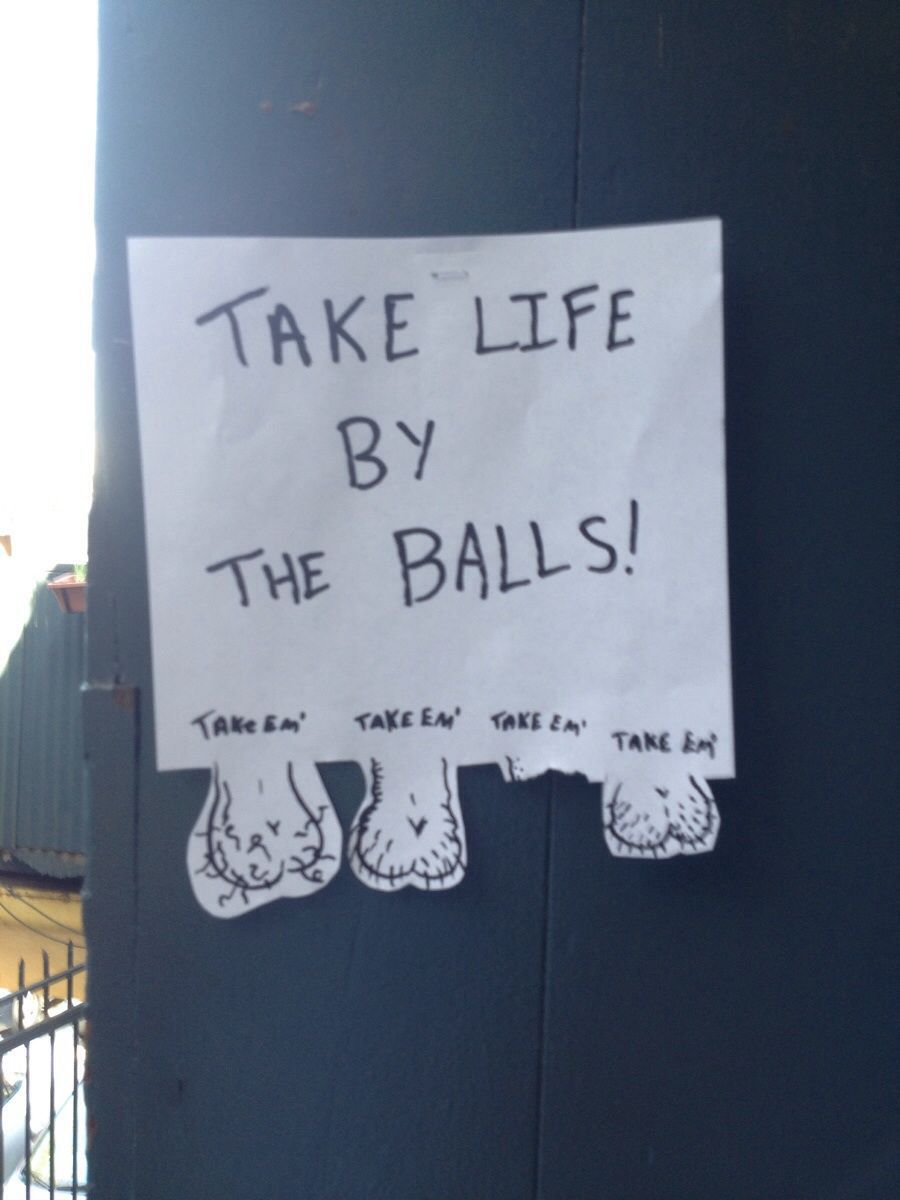 TAKE LIFE
BY
THE BALLS!
TAKE EM' TAKE EM' TAKE EM' TAKE EM'